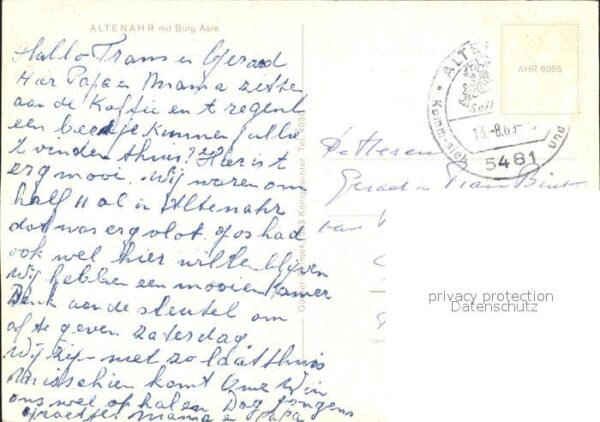 ALTENAHR mit Burg Aare
Hallo Frans en Gerard
Hier Papa en Mama zitten
aan de Koffie en t regent
een beetje kunnen jullie
t vinden thuis? Hier is t
erg mooi. Wij waren om
half 11 al in Altenahr
dat was erg vlot. Jos had
ook wel hier willen blijven
Wij hebben een mooie kamer
Denk aan de sleutel om
af te geven zaterdag.
Wij zijn niet zo laat thuis
misschien komt Ome Wim
ons wel op halen Dag jongens
groetjes Mama en Papa
AHR 8055
ALTE
13.-8.80
5481
und
De Heren
Gerard en Frans
van
privacy protection
Datenschutz